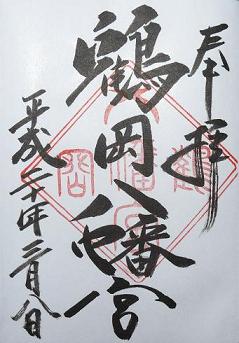 奉拝
鶴岡八幡宮
平成二十年三月八日